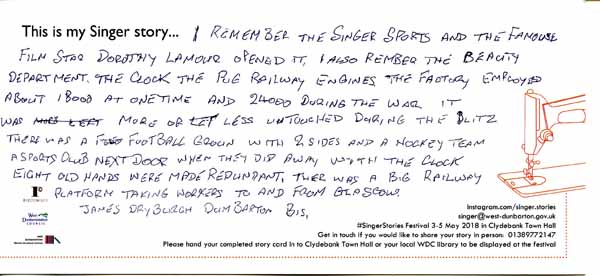 This is my Singer story... I REMEMBER THE SINGER SPORTS AND THE FAMOUSE
FILM STAR DOROTHY LAMOUR OPENED IT, I ALSO REMBER THE BEAUTY
DEPARTMENT. THE CLOCK THE PUG RAILWAY ENGINES THE FACTORY EMPLOYED
ABOUT 18000 AT ONETIME AND 24000 DURING THE WAR IT
WAS MORE OR LESS UNTOUCHED DURING THE BLITZ
THERE WAS A FOOTBALL GROUN WITH 2 SIDES AND A HOCKEY TEAM
A SPORTS CLUB NEXT DOOR WHEN THEY DID AWAY WITH THE CLOCK
EIGHT OLD HANDS WERE MADE REDUNDANT, THER WAS A BIG RAILWAY
PLATFORM TAKING WORKERS TO AND FROM GLASGOW.
JAMES DRYBURGH DUMBARTON
West
Dunbartonshire
COUNCIL
Instagram.com/singer.stories
singer@west-dunbarton.gov.uk
#SingerStories Festival 3-5 May 2018 in Clydebank Town Hall
Get in touch if you would like to share your story in person: 01389772147
Please hand your completed story card in to Clydebank Town Hall or your local WDC library to be displayed at the festival